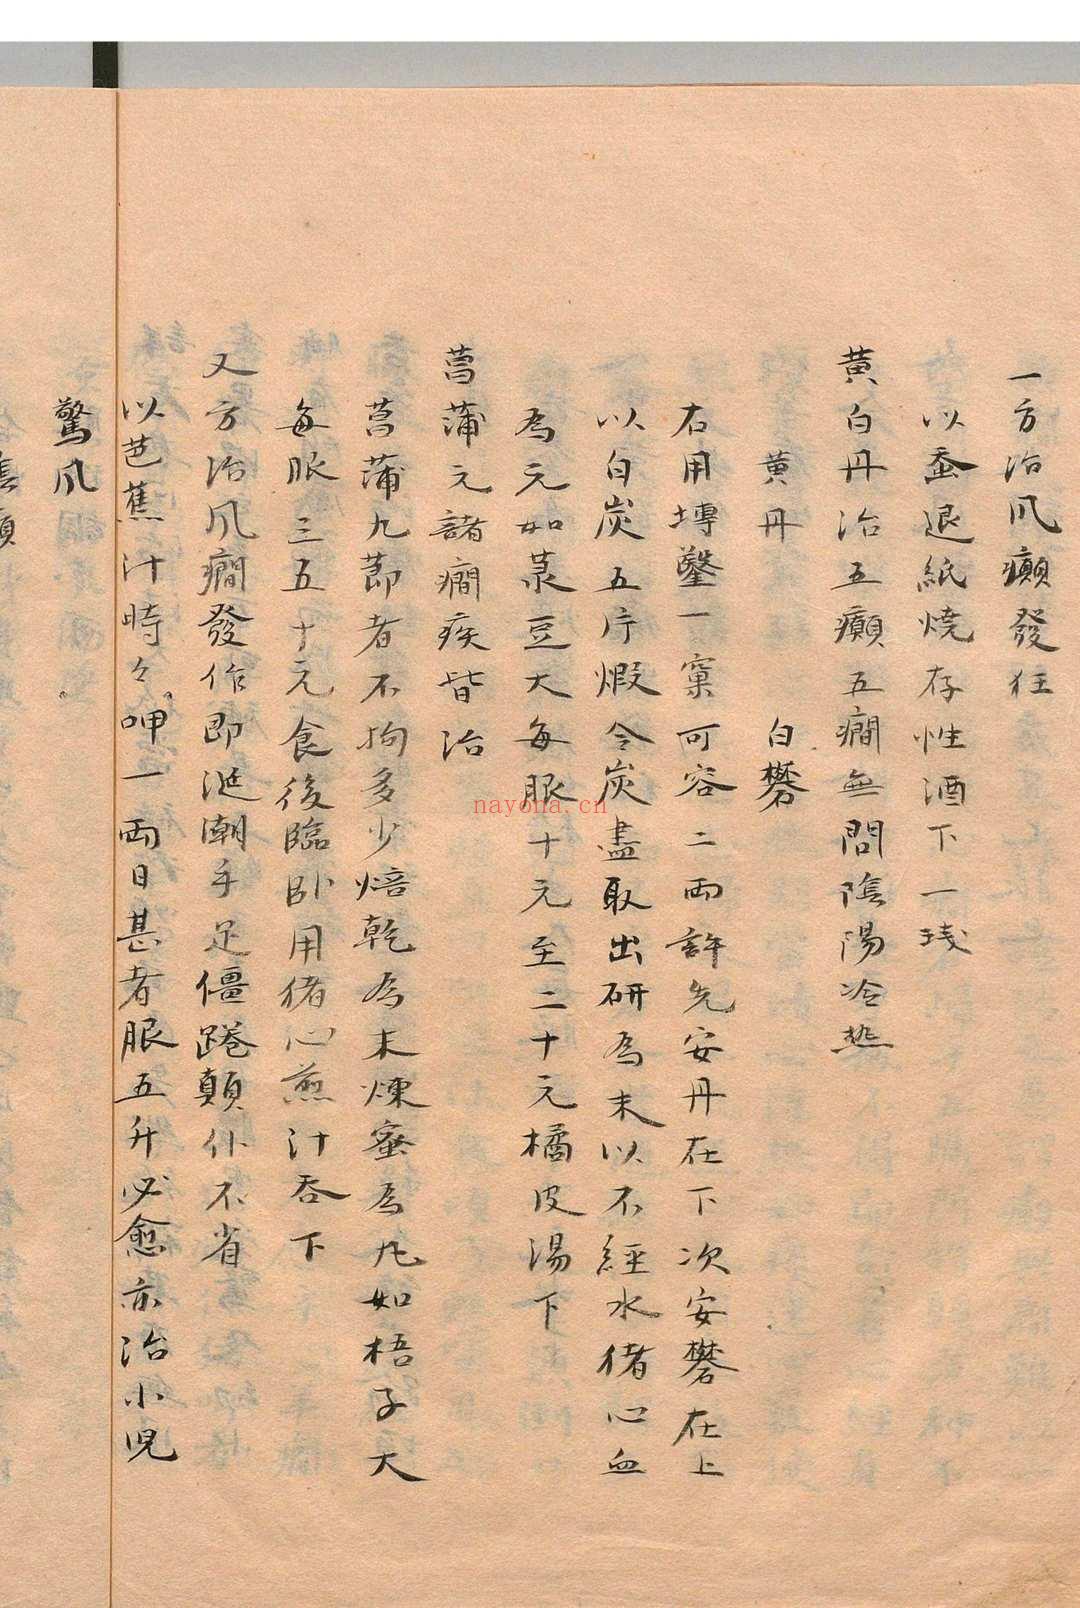 一方治風癲發狂
以蚕退紙燒存性酒下一戔
黄白丹治五癲五癇無問陰陽冷热
黄丹　白礬
右用塼鑿一窠可容二兩許先安丹在下次安礬在上
以白炭五斤煆令炭盡取出研為末以不經水猪心血
為元如菉豆大每服十元至二十元橘皮湯下
菖蒲元諸癇疾皆治
菖蒲九莭者不拘多少焙乾為末煉蜜為丸如梧子大
每服三五十元食後臨卧用猪心煎汁吞下
又方治風癇發作即涎潮手足僵踡顛仆不省
以芭蕉汁時々呷一兩日甚者服五升必愈亦治小児
驚風
nayona.cn